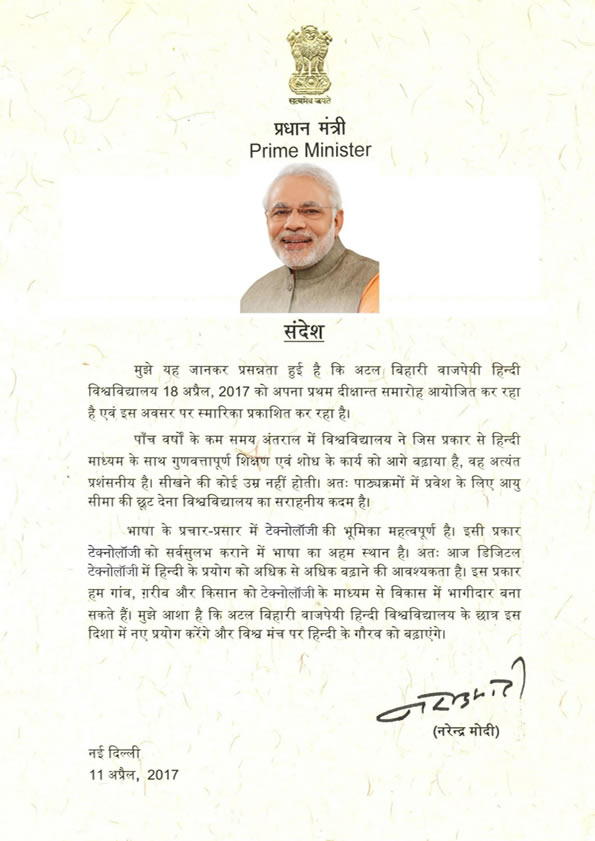 सत्यमेव जयते
प्रधान मंत्री
Prime Minister
संदेश
मुझे यह जानकर प्रसन्नता हुई है कि अटल बिहारी वाजपेयी हिन्दी
विश्वविद्यालय 18 अप्रैल, 2017 को अपना प्रथम दीक्षान्त समारोह आयोजित कर रहा
है एवं इस अवसर पर स्मारिका प्रकाशित कर रहा है।
पाँच वर्षों के कम समय अंतराल में विश्वविद्यालय ने जिस प्रकार से हिन्दी
माध्यम के साथ गुणवत्तापूर्ण शिक्षण एवं शोध के कार्य को आगे बढ़ाया है, वह अत्यंत
प्रशंसनीय है। सीखने की कोई उम्र नहीं होती। अतः पाठ्यक्रमों में प्रवेश के लिए आयु
सीमा की छूट देना विश्वविद्यालय का सराहनीय कदम है।
भाषा के प्रचार-प्रसार में टेक्नोलॉजी की भूमिका महत्वपूर्ण है। इसी प्रकार
टेक्नोलॉजी को सर्वसुलभ कराने में भाषा का अहम स्थान है। अतः आज डिजिटल
टेक्नोलॉजी में हिन्दी के प्रयोग को अधिक से अधिक बढ़ाने की आवश्यकता है। इस प्रकार
हम गांव, ग़रीब और किसान को टेक्नोलॉजी के माध्यम से विकास में भागीदार बना
सकते हैं। मुझे आशा है कि अटल बिहारी वाजपेयी हिन्दी विश्वविद्यालय के छात्र इस
दिशा में नए प्रयोग करेंगे और विश्व मंच पर हिन्दी के गौरव को बढ़ाएंगे।
(नरेन्द्र मोदी)
नई दिल्ली
11 अप्रैल, 2017